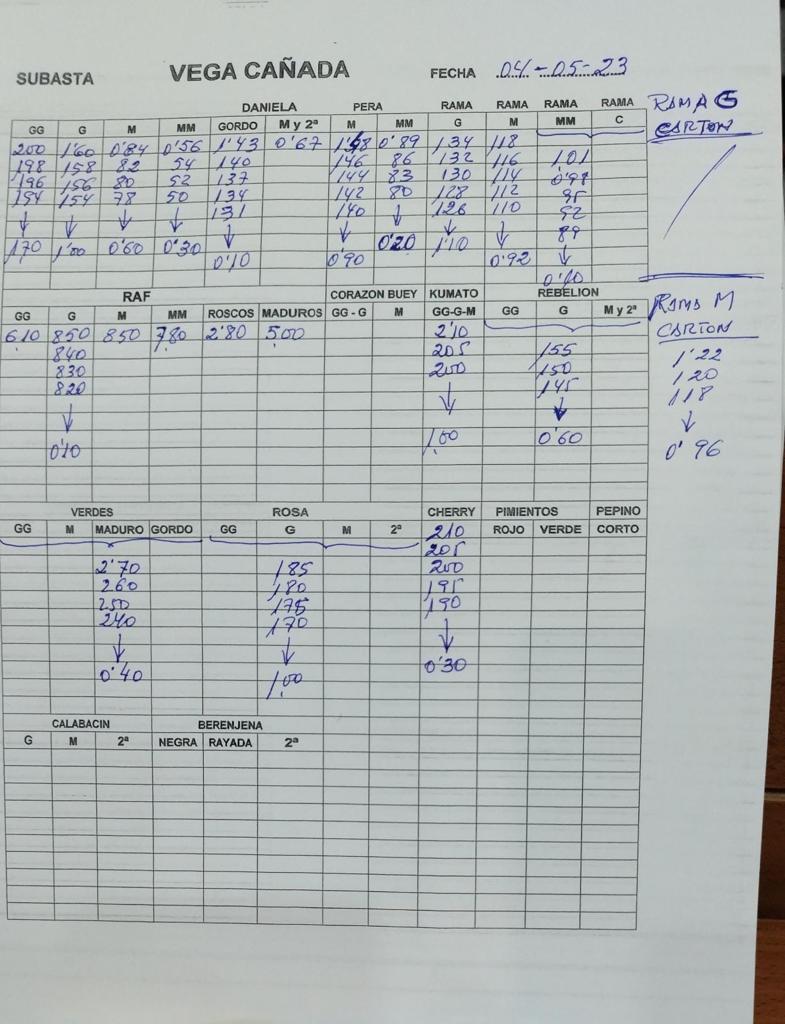 SUBASTA VEGA CAÑADA FECHA 04-05-23
DANIELA PERA RAMA RAMA RAMA RAMA RAMA G
GG G M MM GORDO M y 2ª M MM G M MM C CARTON
200 1'60 0'84 0'56 1'43 0'67 0'89 134 118
198 158 82 54 140 146 86 132 116 101
196 156 80 52 137 144 83 130 114
194 154 78 50 134 142 80 128 112 95
↓ ↓ ↓ ↓ 131 140 ↓ 126 110 92
170 1'00 0'60 0'30 ↓ ↓ 0'20 ↓ ↓ 89
0'10 0'90 110 0'92 ↓
RAF CORAZON BUEY KUMATO REBELION RAMA M
GG G M MM ROSCOS MADUROS GG - G M GG-G-M GG G M y 2ª CARTON
610 850 850 780 2'80 500 2'10
840 205 155 1'22
830 200 150 120
820 ↓ 145 118
↓ ↓ ↓
0'10 1,00 0'60 0'96
VERDES ROSA CHERRY PIMIENTOS PEPINO
GG M MADURO GORDO GG G M 2ª 210 ROJO VERDE CORTO
205
2'70 185 200
260 180 195
250 175 190
240 170 ↓
↓ ↓ 0'30
0'40 1,00
CALABACIN BERENJENA
G M 2ª NEGRA RAYADA 2ª